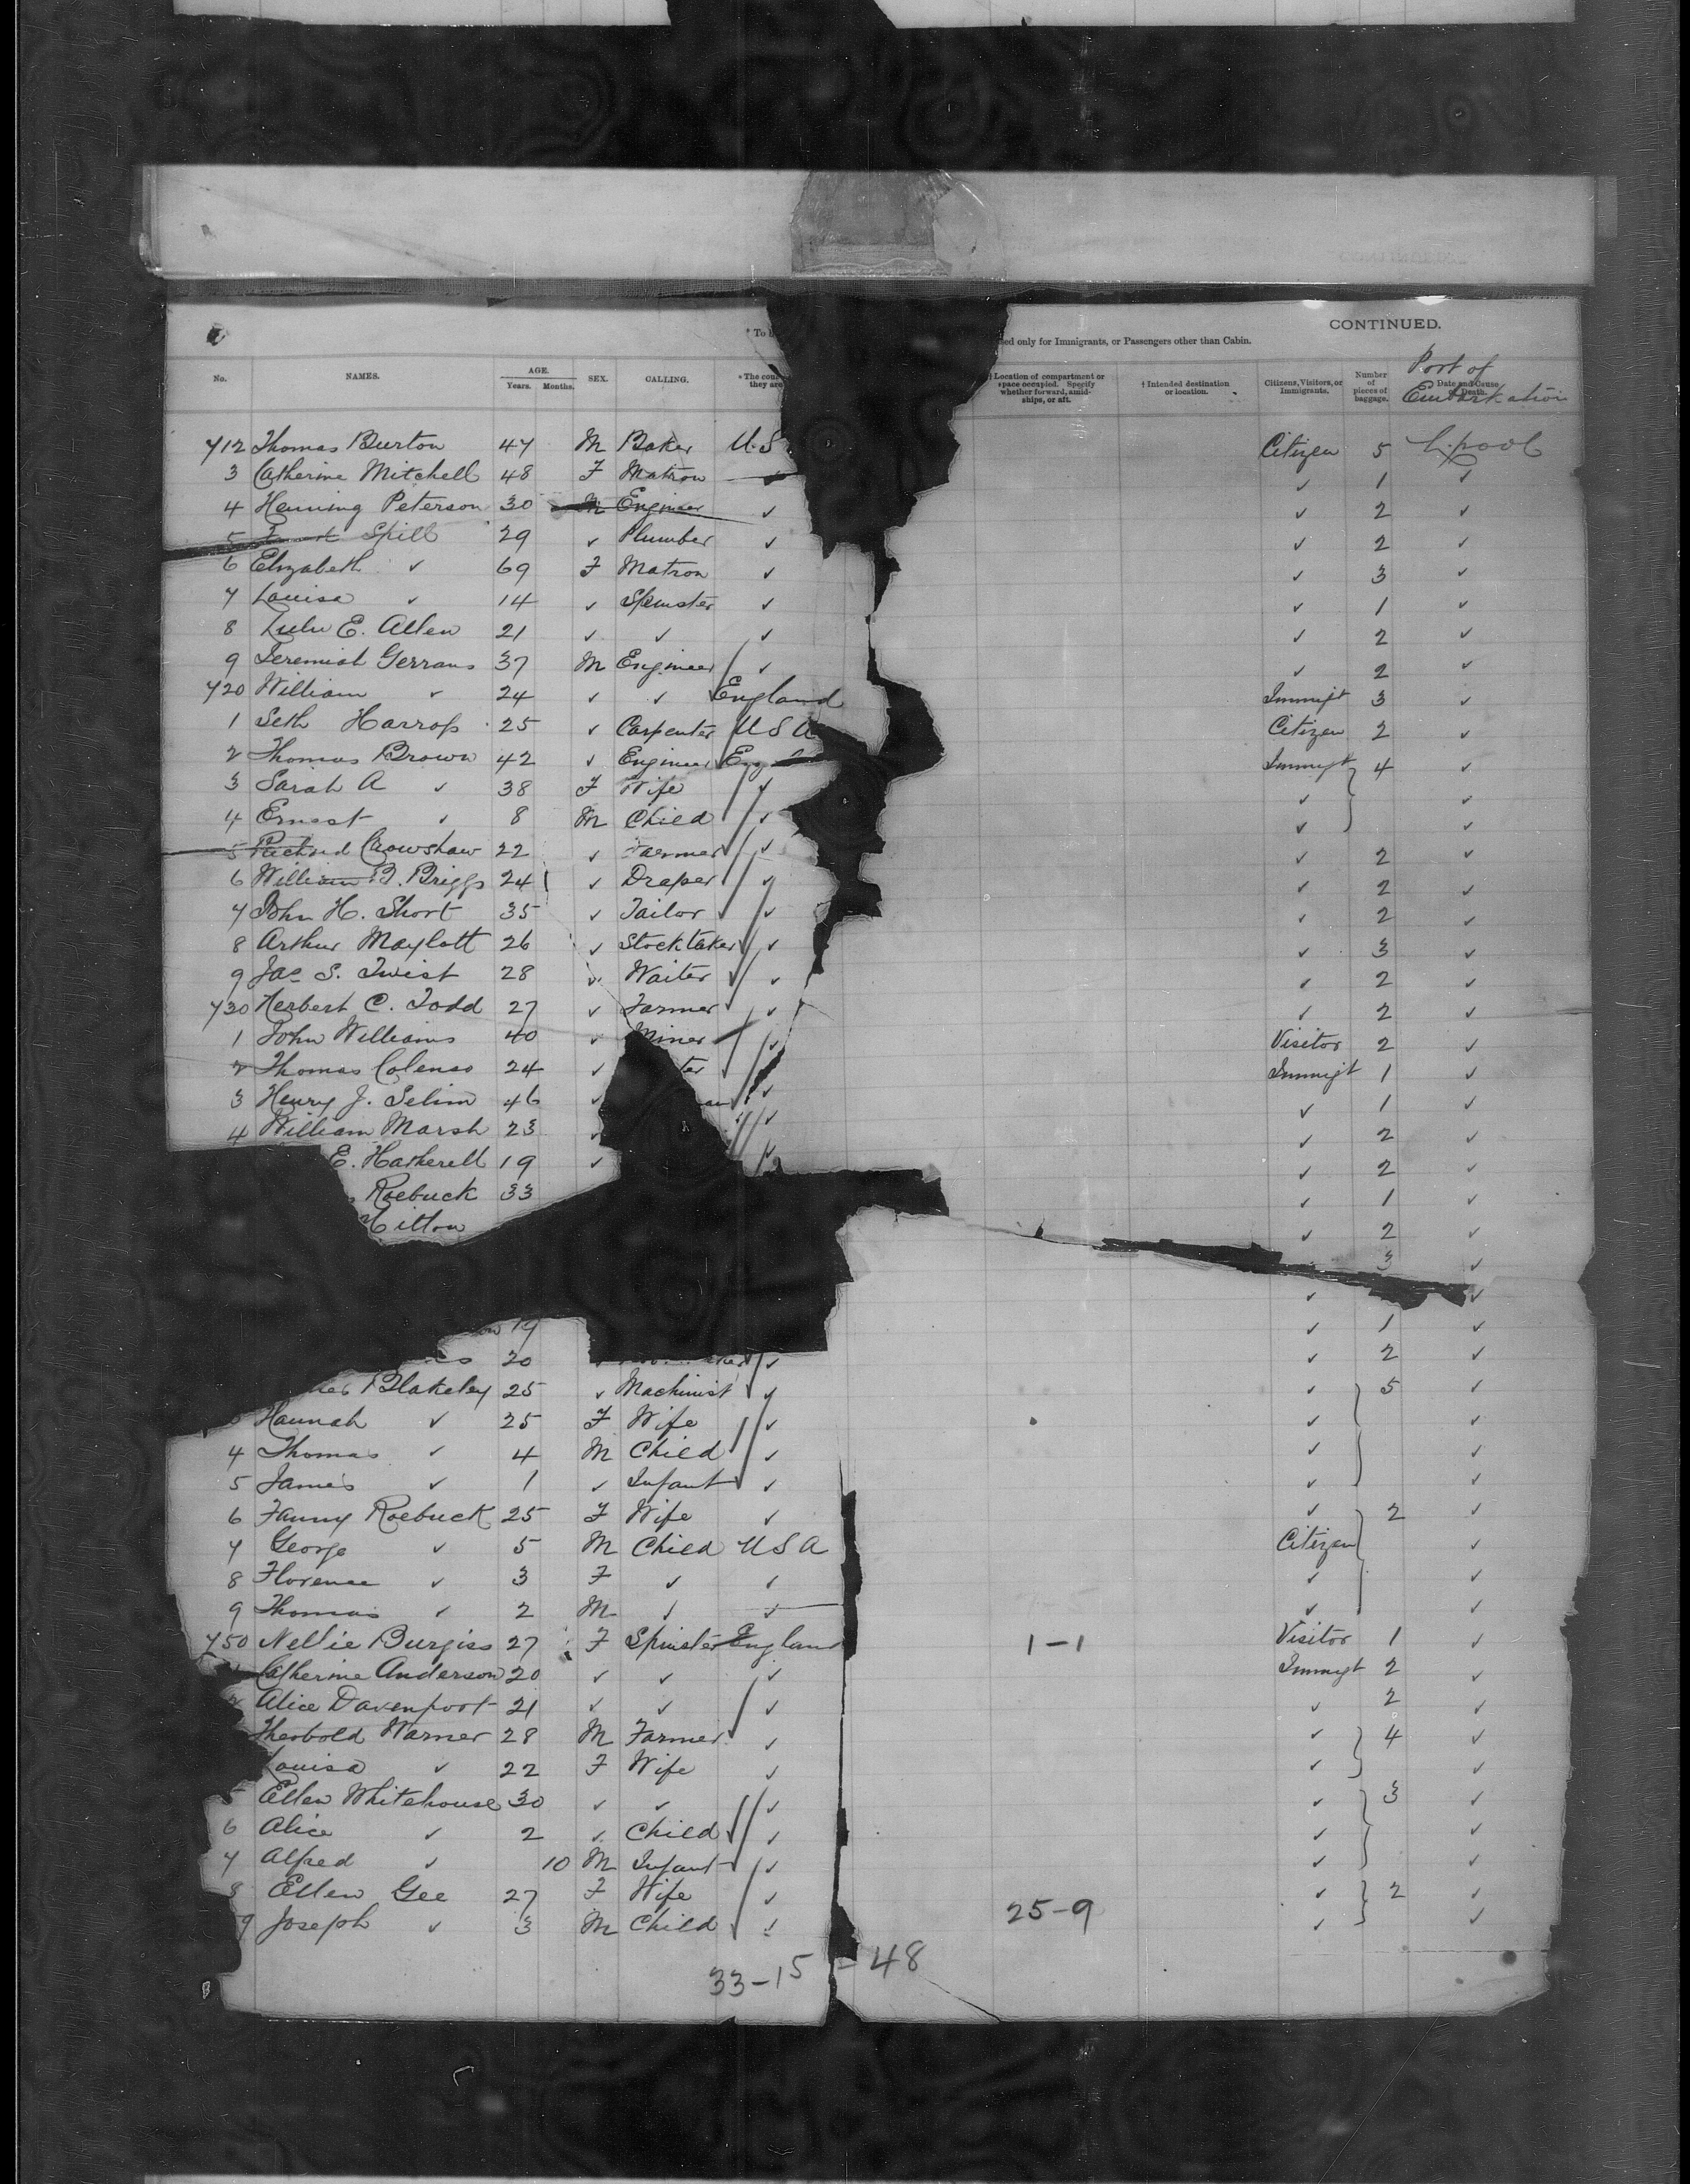 CONTINUED.
† To b ed only for Immigrants, or Passengers other than Cabin.
No. NAMES. AGE. Years. Months. SEX. CALLING. * The coun they are † Location of compartment or space occupied. Specify whether forward, amidships, or aft. † Intended destination or location. Citizens, Visitors, or Immigrants. Number of pieces of baggage. Date and Cause of Death. Port of Embarkation
712 Thomas Burton 47 M Baker U.S Citizen 5 L.pool
3 Catherine Mitchell 48 F Matron ✓ ✓ 1 ✓
4 Henning Peterson 30 M Engineer ✓ ✓ 2 ✓
5 Spill 29 ✓ Plumber ✓ ✓ 2 ✓
6 Elizabeth ✓ 69 F Matron ✓ ✓ 3 ✓
7 Louisa ✓ 14 ✓ Spinster ✓ ✓ 1 ✓
8 Lulu E. Allen 21 ✓ ✓ ✓ ✓ 2 ✓
9 Jeremiah Gerrans 37 M Engineer ✓ ✓ 2 ✓
720 William ✓ 24 ✓ ✓ England Immigt 3 ✓
1 Seth Harrop 25 ✓ Carpenter U S A Citizen 2 ✓
2 Thomas Brown 42 ✓ Engineer Eng Immigt 4 ✓
3 Sarah A ✓ 38 F Wife ✓ ✓ ✓
4 Ernest ✓ 8 M Child ✓ ✓ ✓
5 Richard Crowshaw 22 ✓ Farmer ✓ ✓ 2 ✓
6 William B. Briggs 24 ✓ Draper ✓ ✓ 2 ✓
7 John H. Short 35 ✓ Tailor ✓ ✓ 2 ✓
8 Arthur Maylott 26 ✓ Stocktaker ✓ ✓ 3 ✓
9 Jas S. Twist 28 ✓ Waiter ✓ ✓ 2 ✓
730 Herbert C. Todd 27 ✓ Farmer ✓ ✓ 2 ✓
1 John Williams 40 ✓ Miner ✓ Visitor 2 ✓
2 Thomas Colenso 24 ✓ ter ✓ Immigt 1 ✓
3 Henry J. Selim 46 ✓ ✓ ✓ 1 ✓
4 William Marsh 23 ✓ ✓ ✓ 2 ✓
E. Hatherell 19 ✓ ✓ ✓ 2 ✓
Roebuck 33 ✓ 1 ✓
Hilton ✓ 2 ✓
3 ✓
✓ ✓
19 ✓ 1 ✓
20 ✓ ✓ 2 ✓
Blakeley 25 ✓ Machinist ✓ ✓ 5 ✓
Hannah ✓ 25 F Wife ✓ ✓ ✓
4 Thomas ✓ 4 M Child ✓ ✓ ✓
5 James ✓ 1 ✓ Infant ✓ ✓ ✓
6 Fanny Roebuck 25 F Wife ✓ ✓ 2 ✓
7 George ✓ 5 M Child U S A Citizen ✓
8 Florence ✓ 3 F ✓ ✓ ✓ ✓
9 Thomas ✓ 2 M ✓ ✓ ✓ ✓
750 Nellie Burgiss 27 F Spinster England 1-1 Visitor 1 ✓
Catherine Anderson 20 ✓ ✓ ✓ Immigt 2 ✓
Alice Davenport 21 ✓ ✓ ✓ ✓ 2 ✓
Theobold Warner 28 M Farmer ✓ ✓ 4 ✓
Louisa ✓ 22 F Wife ✓ ✓ ✓
5 Ellen Whitehouse 30 ✓ ✓ ✓ ✓ 3 ✓
6 Alice ✓ 2 ✓ Child ✓ ✓ ✓
7 Alfred ✓ 10 M Infant ✓ ✓ ✓
8 Ellen Gee 27 F Wife ✓ ✓ 2 ✓
9 Joseph ✓ 3 M Child ✓ 25-9 ✓ ✓
33-15 - 48